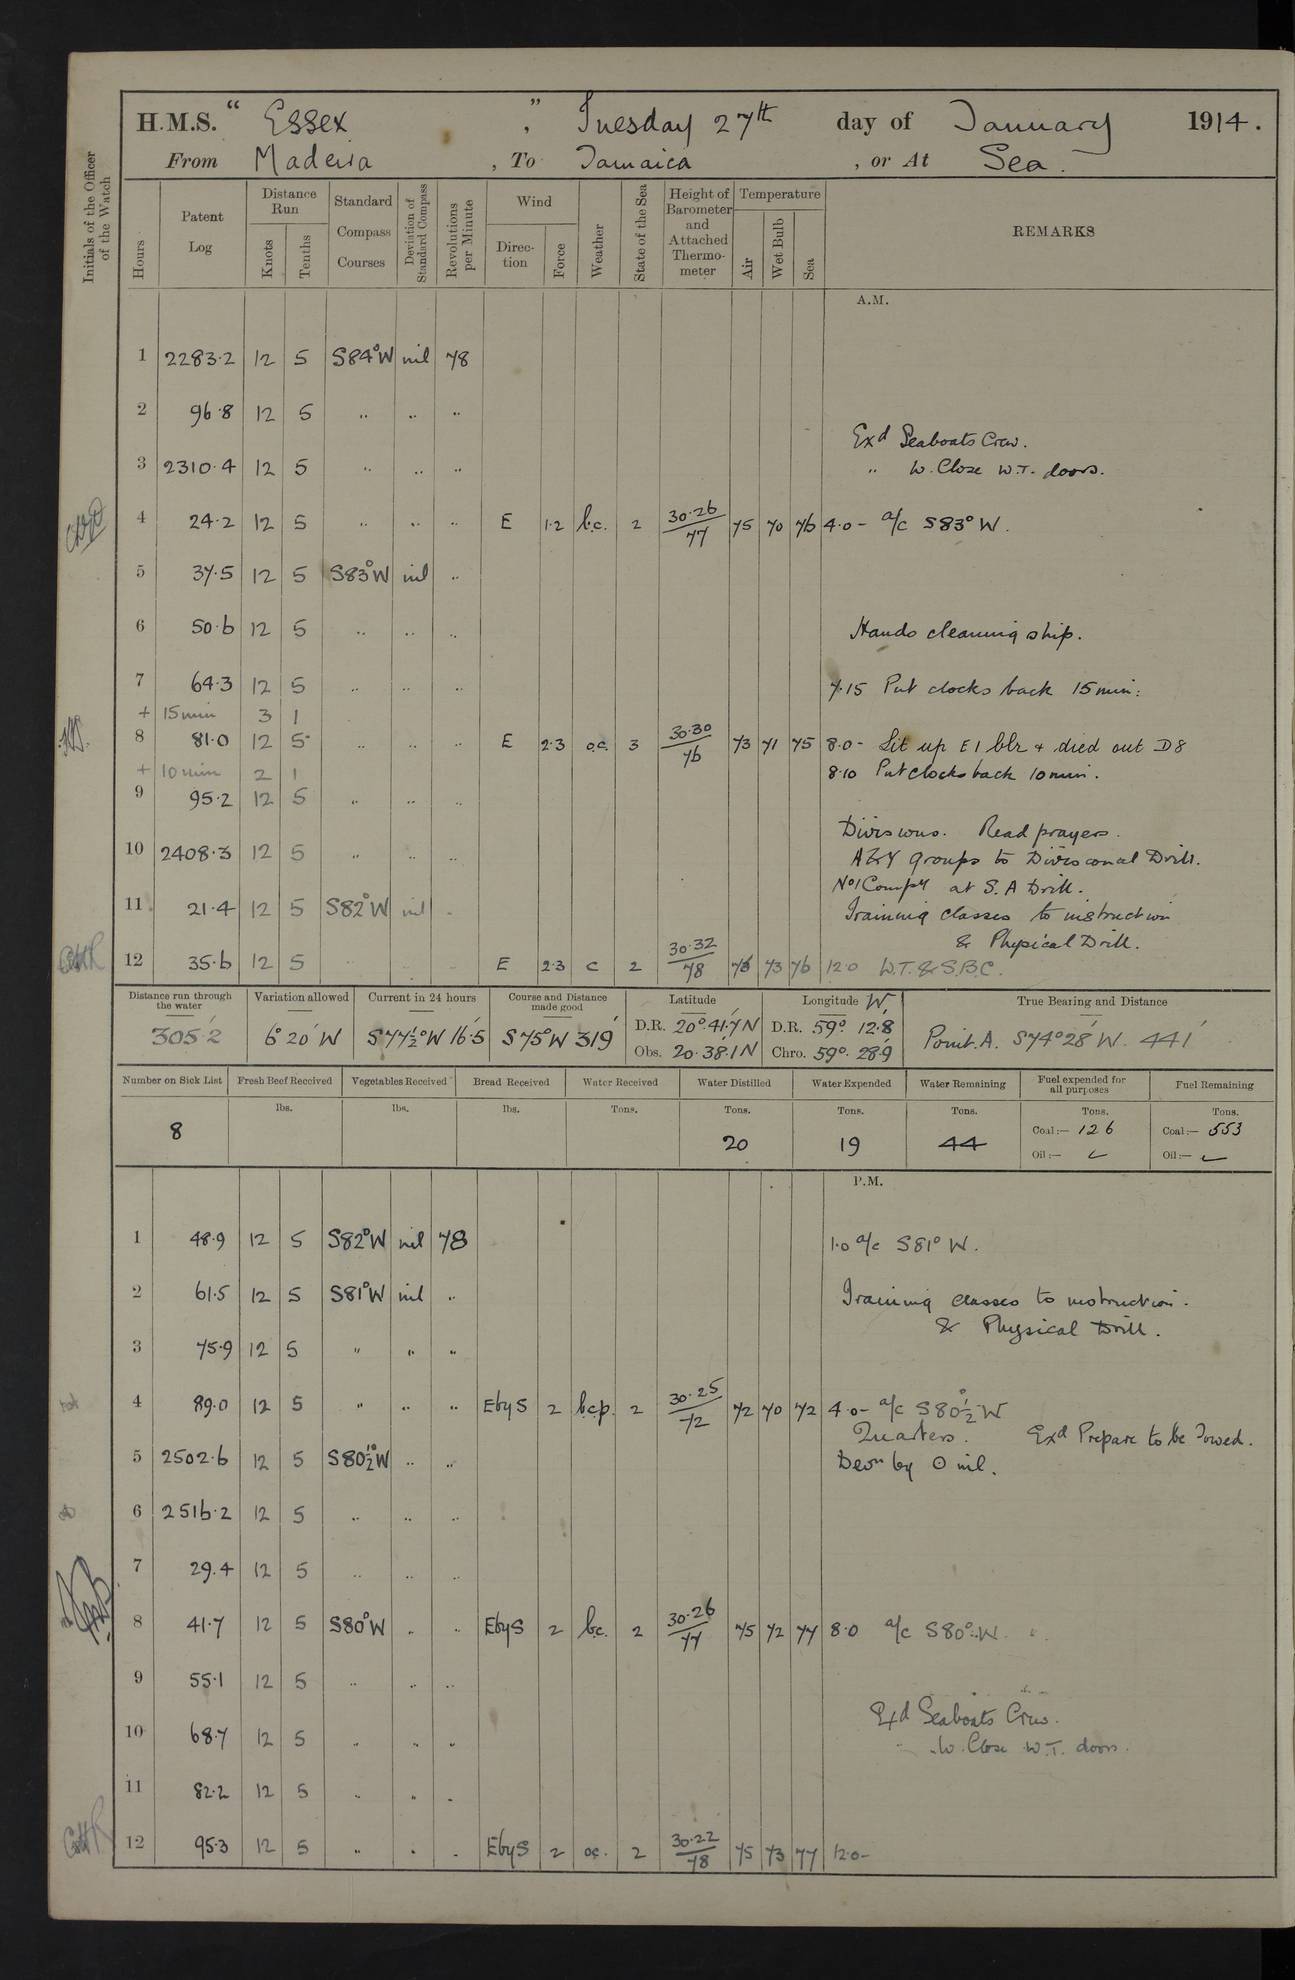 H.M.S. " Essex ", Tuesday 27th day of January 1914.
From Maderia, To Jamaica, or At Sea.
Initials of the Officer of the Watch
Hours
Patent Log
Distance Run
Knots
Tenths
Standard Compass Courses
Deviation of Standard Compass
Revolutions per Minute
Wind
Direction
Force
Weather
State of the Sea
Height of Barometer and Attached Thermometer
Temperature
Air
Wet Bulb
Sea
REMARKS
A.M.
1 2283·2 12 5 S84°W nil 78
2 96·8 12 5 .. .. ..
Exd Seaboats Crew.
3 2310·4 12 5 .. .. .. .. W. Close W.T. doors.
4 24·2 12 5 .. .. .. E 1·2 b.c. 2 30·26/77 75 70 76 4·0- a/c S83°W.
5 37·5 12 5 S83°W nil ..
6 50·6 12 5 .. .. .. Hands cleaning ship.
7 64·3 12 5 .. .. .. 7·15 Put clocks back 15 min:
+ 15 min 3 1
8 81·0 12 5 .. .. .. E 2·3 o.c. 3 30·30/76 73 71 75 8·0- Lit up E1 blr + died out D8
+ 10 min 2 1 8·10 Put clocks back 10 min.
9 95·2 12 5 .. .. ..
Divisions. Read prayers.
10 2408·3 12 5 .. .. .. groups to Divisional Drill.
No1 Compy at S.A Drill.
11 21·4 12 5 S82°W nil .. Training classes to instruction
& Physical Drill.
12 35·6 12 5 E 2·3 c 2 30·32/78 73 76 12·0 W.T. & S.B.C.
Distance run through the water
305·2
Variation allowed
6°20' W
Current in 24 hours
S77½°W 16·5'
Course and Distance made good
S75°W 319'
Latitude
D.R. 20°.41·7'N
Obs. 20·38·1'N
Longitude W
D.R. 59°. 12·8'
Chro. 59°. 28·9'
True Bearing and Distance
Point.A. S74°28'W. 441'
Number on Sick List
8
Fresh Beef Received
lbs.
Vegetables Received
lbs.
Bread Received
lbs.
Water Received
Tons.
Water Distilled
Tons.
20
Water Expended
Tons.
19
Water Remaining
Tons.
44
Fuel expended for all purposes
Tons.
Coal:— 126
Oil:—
Fuel Remaining
Tons.
Coal:— 553
Oil:—
P.M.
1 48·9 12 5 S82°W nil 78 1·0 a/c S81°W.
2 61·5 12 5 S81°W nil .. Training classes to instruction.
& Physical Drill.
3 75·9 12 5 " " "
4 89·0 12 5 " .. " EbyS 2 b.c.p. 2 30·25/72 72 70 72 4·0- a/c S80½°W
Quarters. Exd Prepare to be Towed.
5 2502·6 12 5 S80½°W .. .. Devn by O nil.
6 2516·2 12 5 .. .. ..
7 29·4 12 5 .. .. ..
8 41·7 12 5 S80°W .. .. EbyS 2 b.c. 2 30·26/77 75 72 77 8·0 a/c S80°W.
9 55·1 12 5 .. .. ..
Exd Seaboats Crew.
10 68·7 12 5 .. .. .. .. W. Close W.T. doors.
11 82·2 12 5 .. .. ..
12 95·3 12 5 .. .. .. EbyS 2 o.c. 2 30·22/78 75 73 77 12·0-